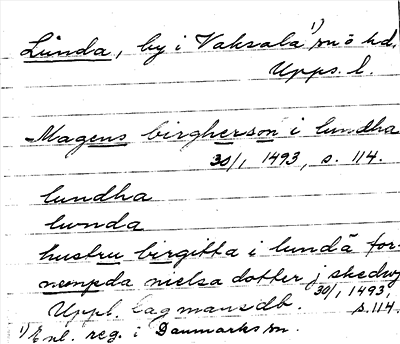 Lunda, by i Vaksala ¹⁾ sn ö hd.
Upps. l.
Magens birgherson i lundha
30/1 1493, s. 114.
lundha
lwnda
hustru birgitta i lundā for-
nempda nielsa dotter j skedwy
30/1 1493,
Uppl. lagmansdb. s. 114.
¹⁾ Enl. reg. i Danmarks sn.